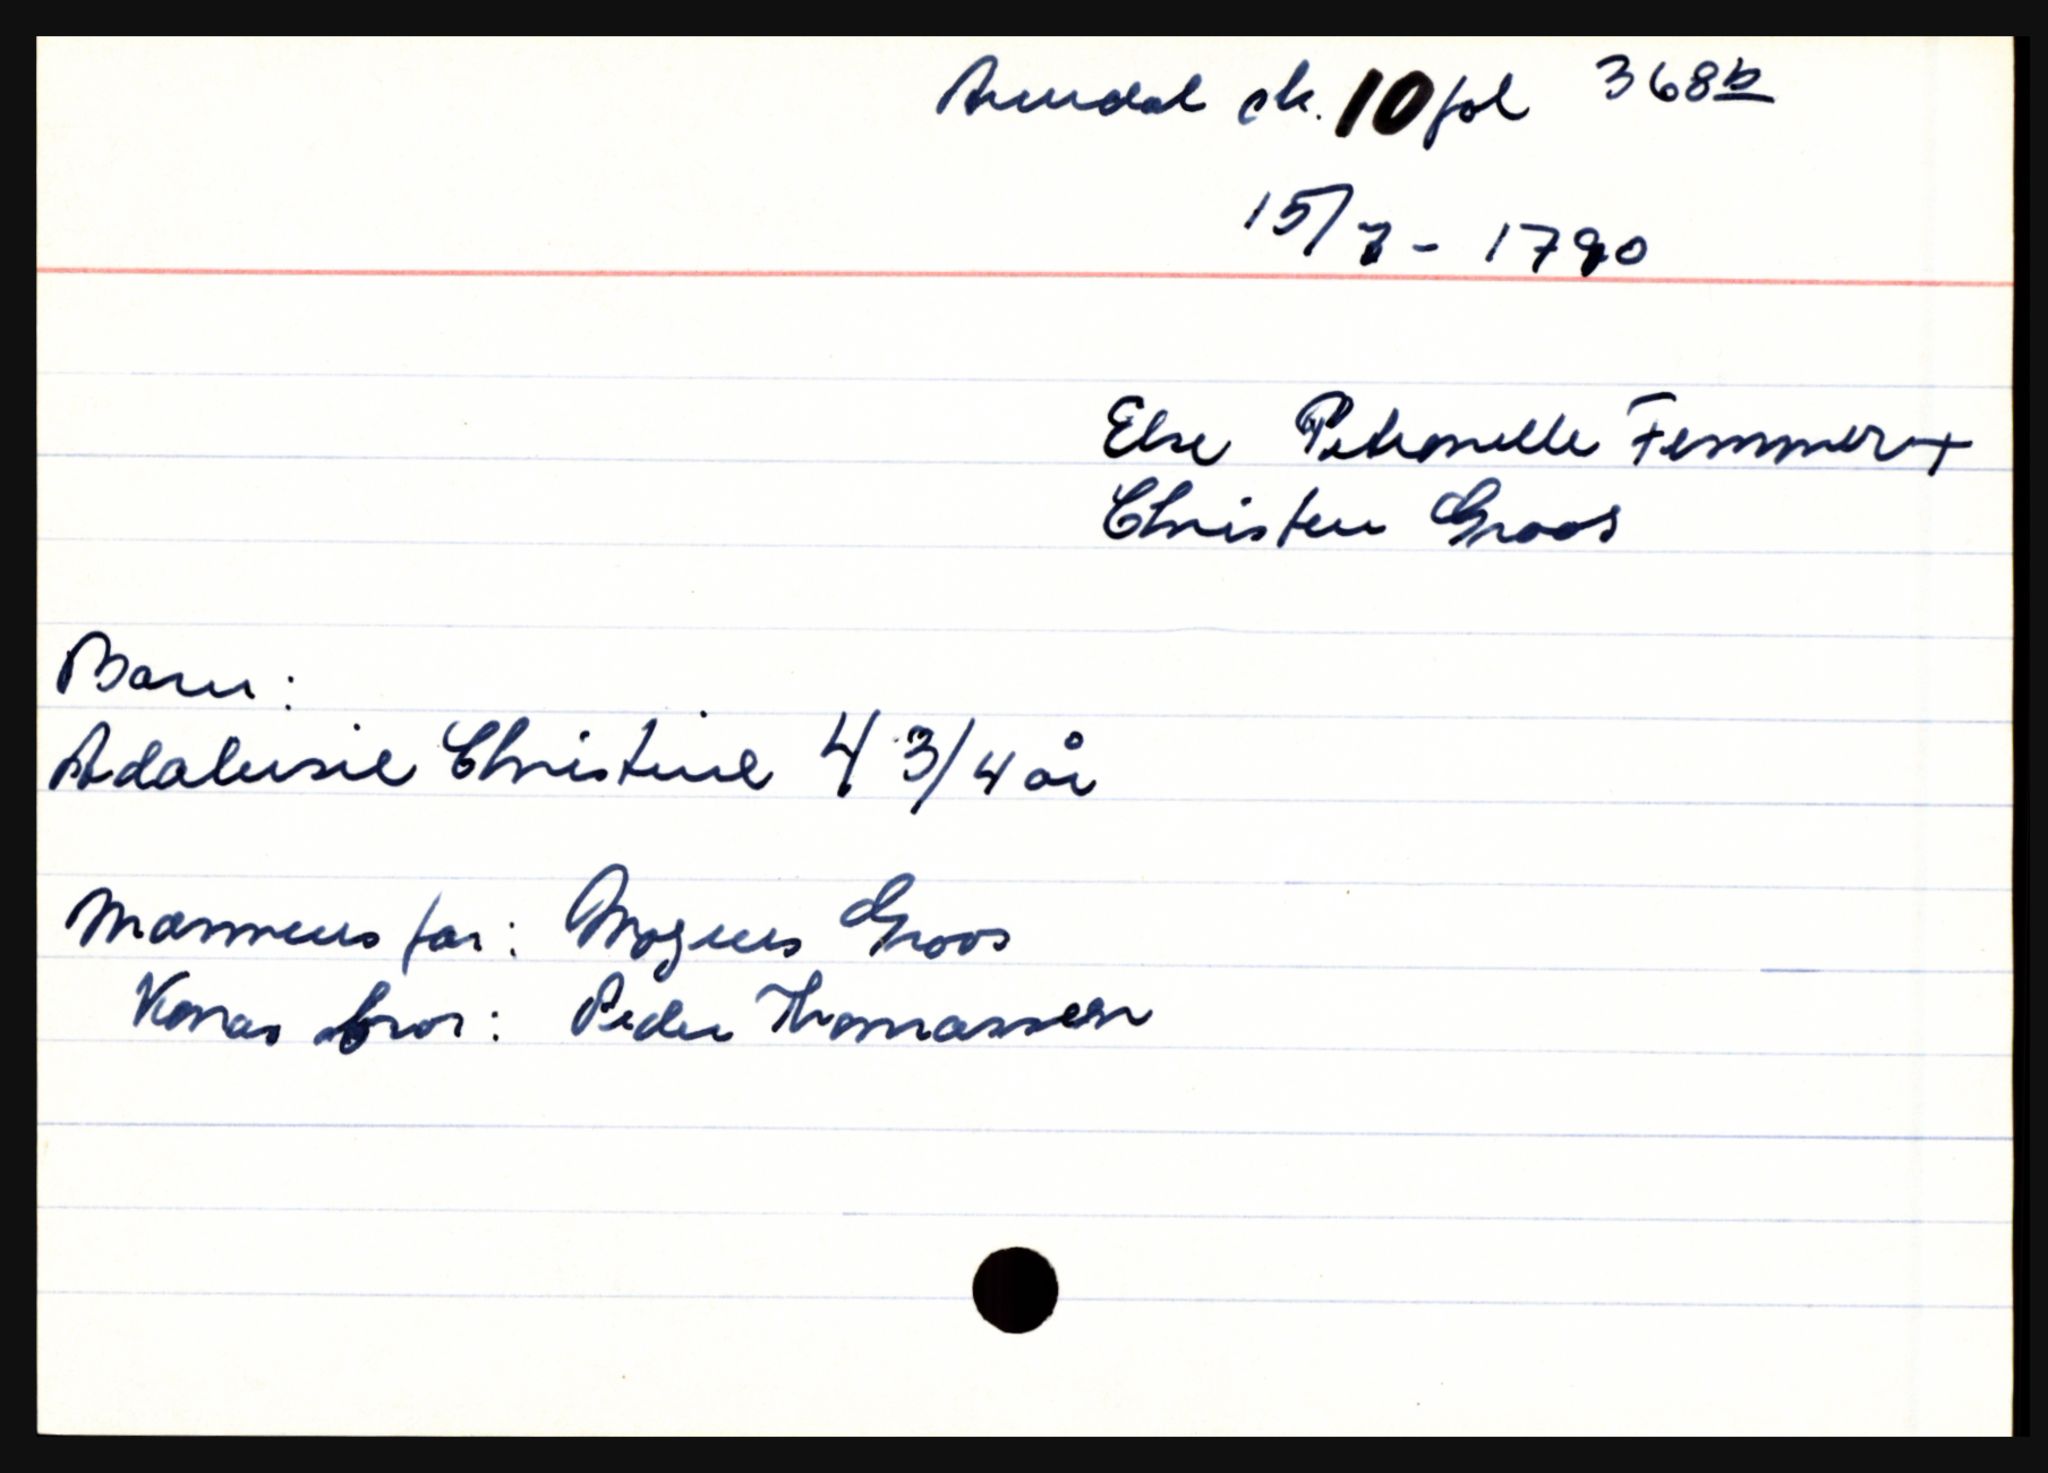 Arendal sk. 10 fol 368b
15/7 - 1790
Else Petronelle Femmer +
Christen Groos
Barn:
Adalusie Christine 4 3/4 år
Mannens far: Mogens Groos
Konas bror: Peder Thomassen